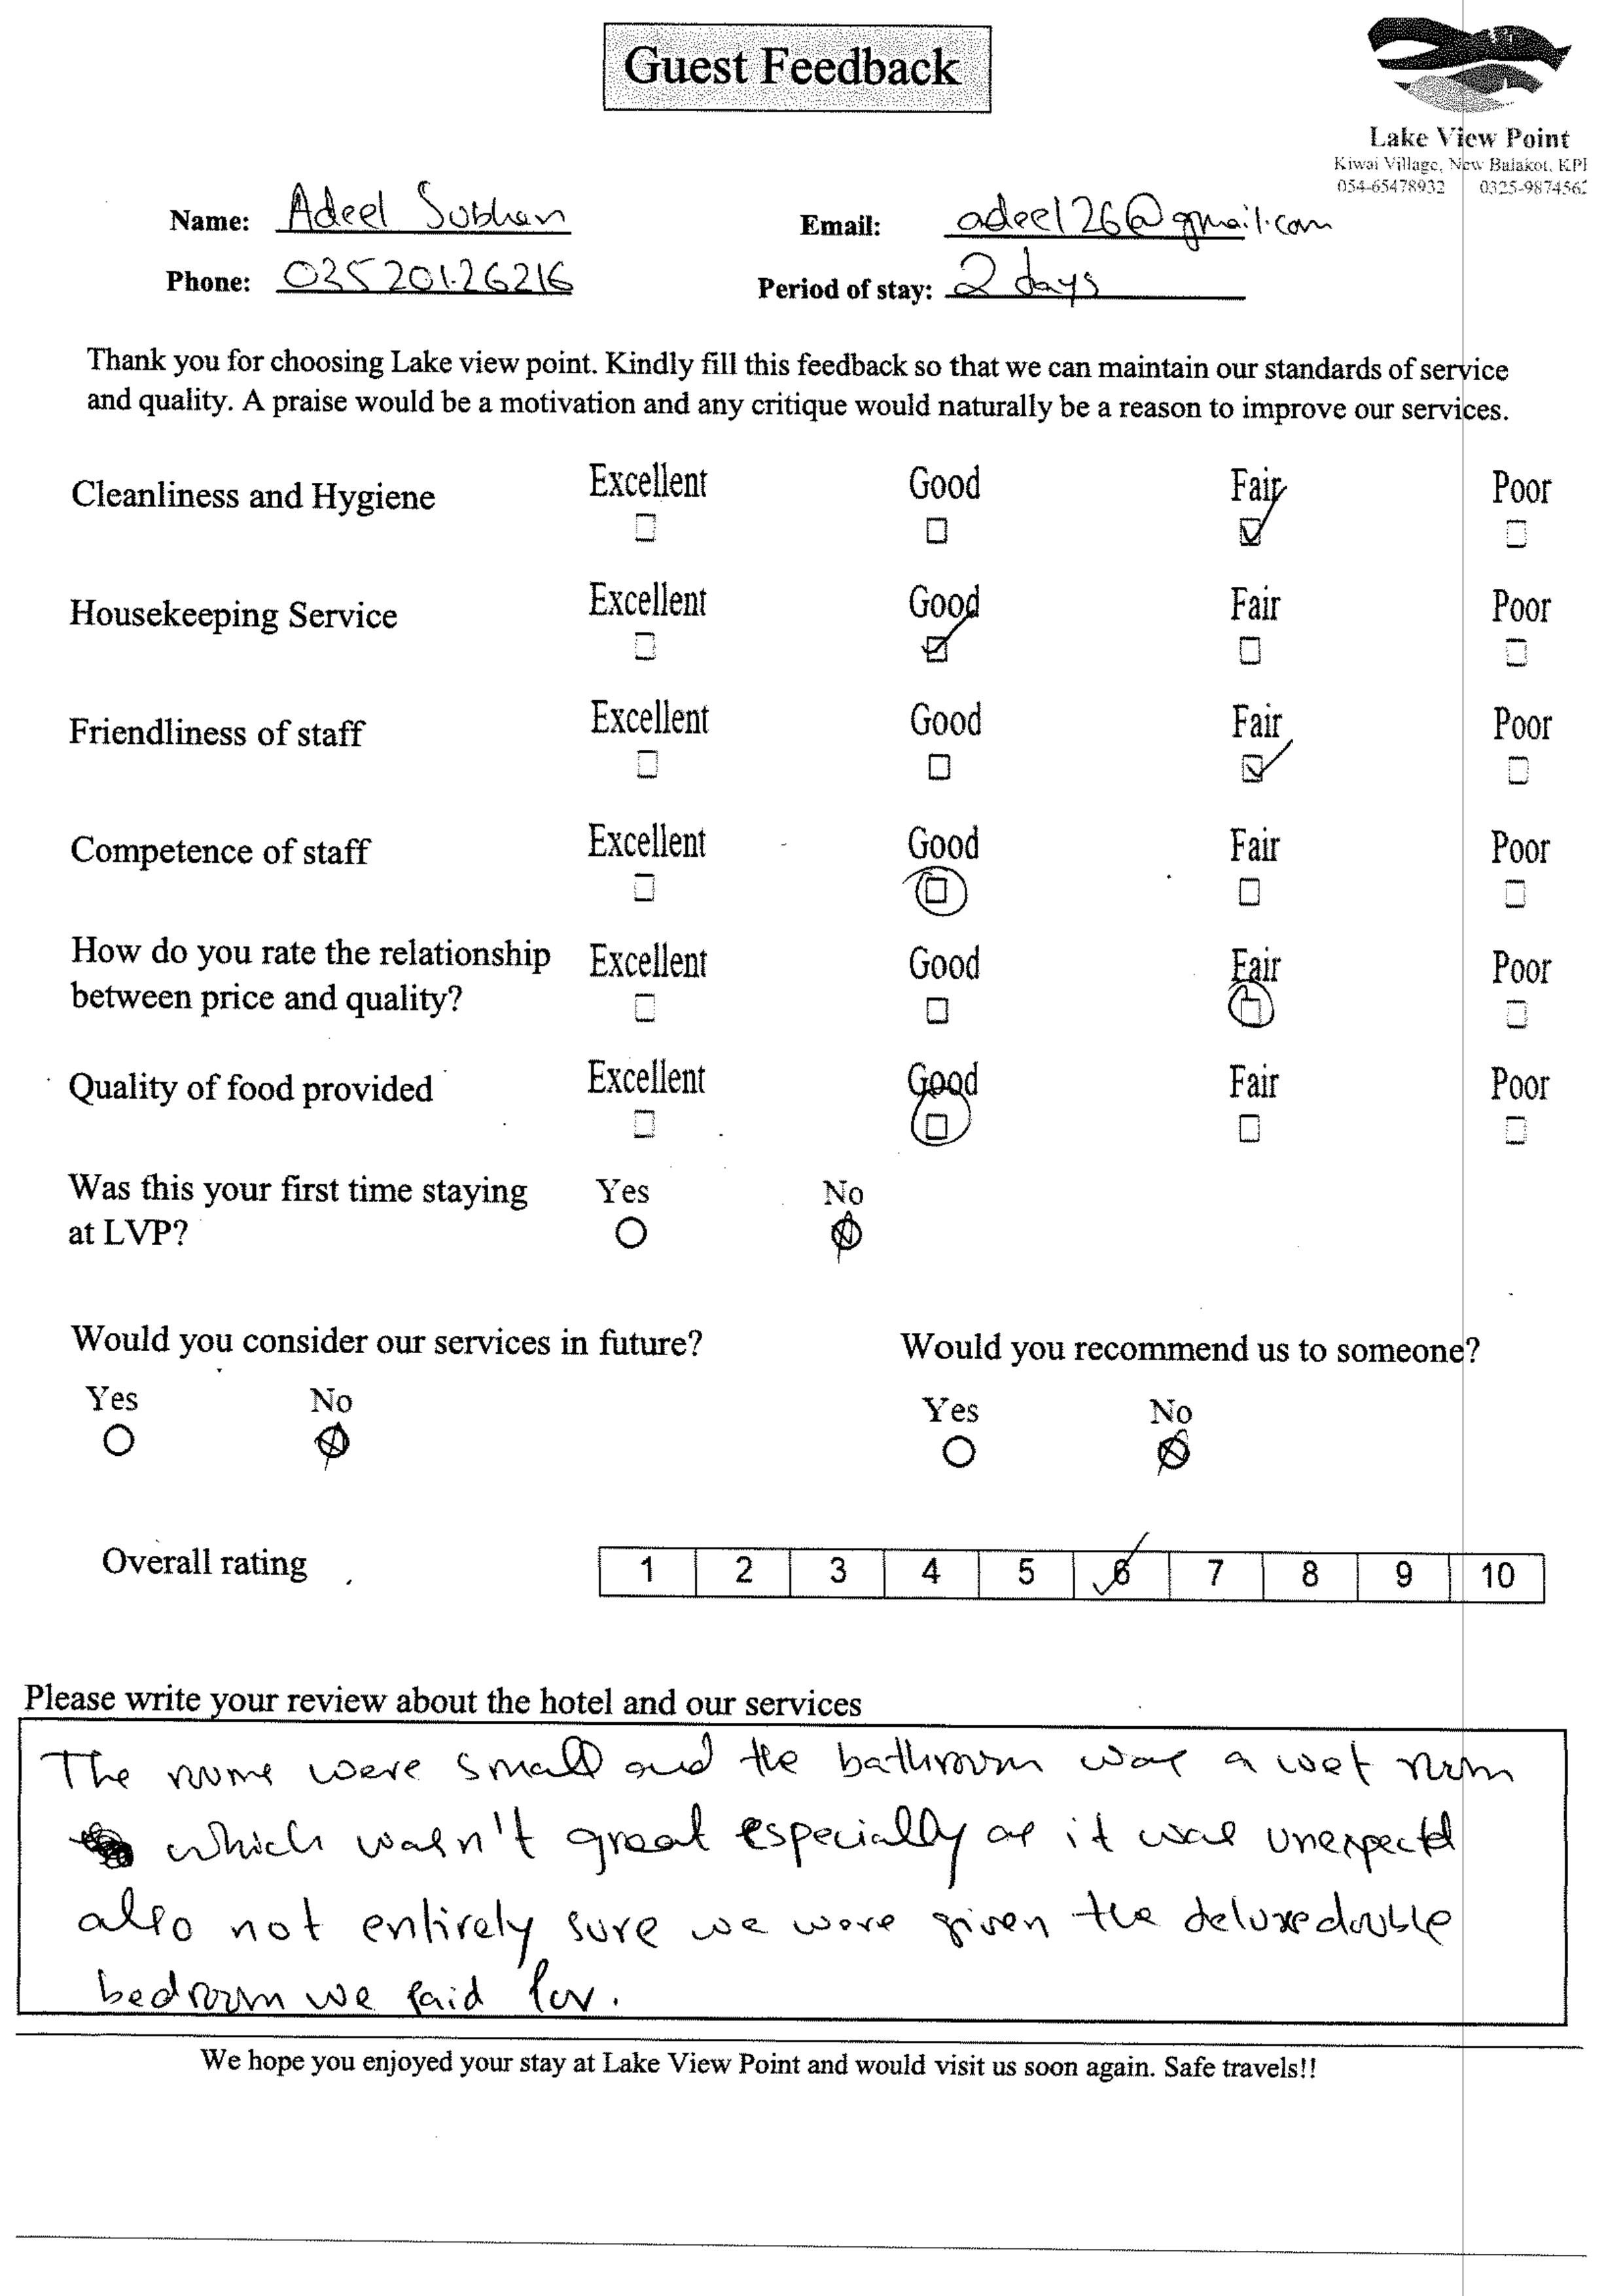 Guest Feedback
Lake View Point
Kiwai Village, New Balakot, KPK
054-65478932 0325-9874562
Name: Adeel Subhan Email: adeel26@gmail.com
Phone: 03520126216 Period of stay: 2 days
Thank you for choosing Lake view point. Kindly fill this feedback so that we can maintain our standards of service
and quality. A praise would be a motivation and any critique would naturally be a reason to improve our services.
Cleanliness and Hygiene Excellent Good Fair Poor
Housekeeping Service Excellent Good Fair Poor
Friendliness of staff Excellent Good Fair Poor
Competence of staff Excellent Good Fair Poor
How do you rate the relationship
between price and quality? Excellent Good Fair Poor
Quality of food provided Excellent Good Fair Poor
Was this your first time staying
at LVP? Yes No
Would you consider our services in future? Would you recommend us to someone?
Yes No Yes No
Overall rating 1 2 3 4 5 6 7 8 9 10
Please write your review about the hotel and our services
The rooms were small and the bathroom was a wet room
which wasn't great especially as it was unexpectd
also not entirely sure we were given the deluxe double
bedroom we paid for.
We hope you enjoyed your stay at Lake View Point and would visit us soon again. Safe travels!!